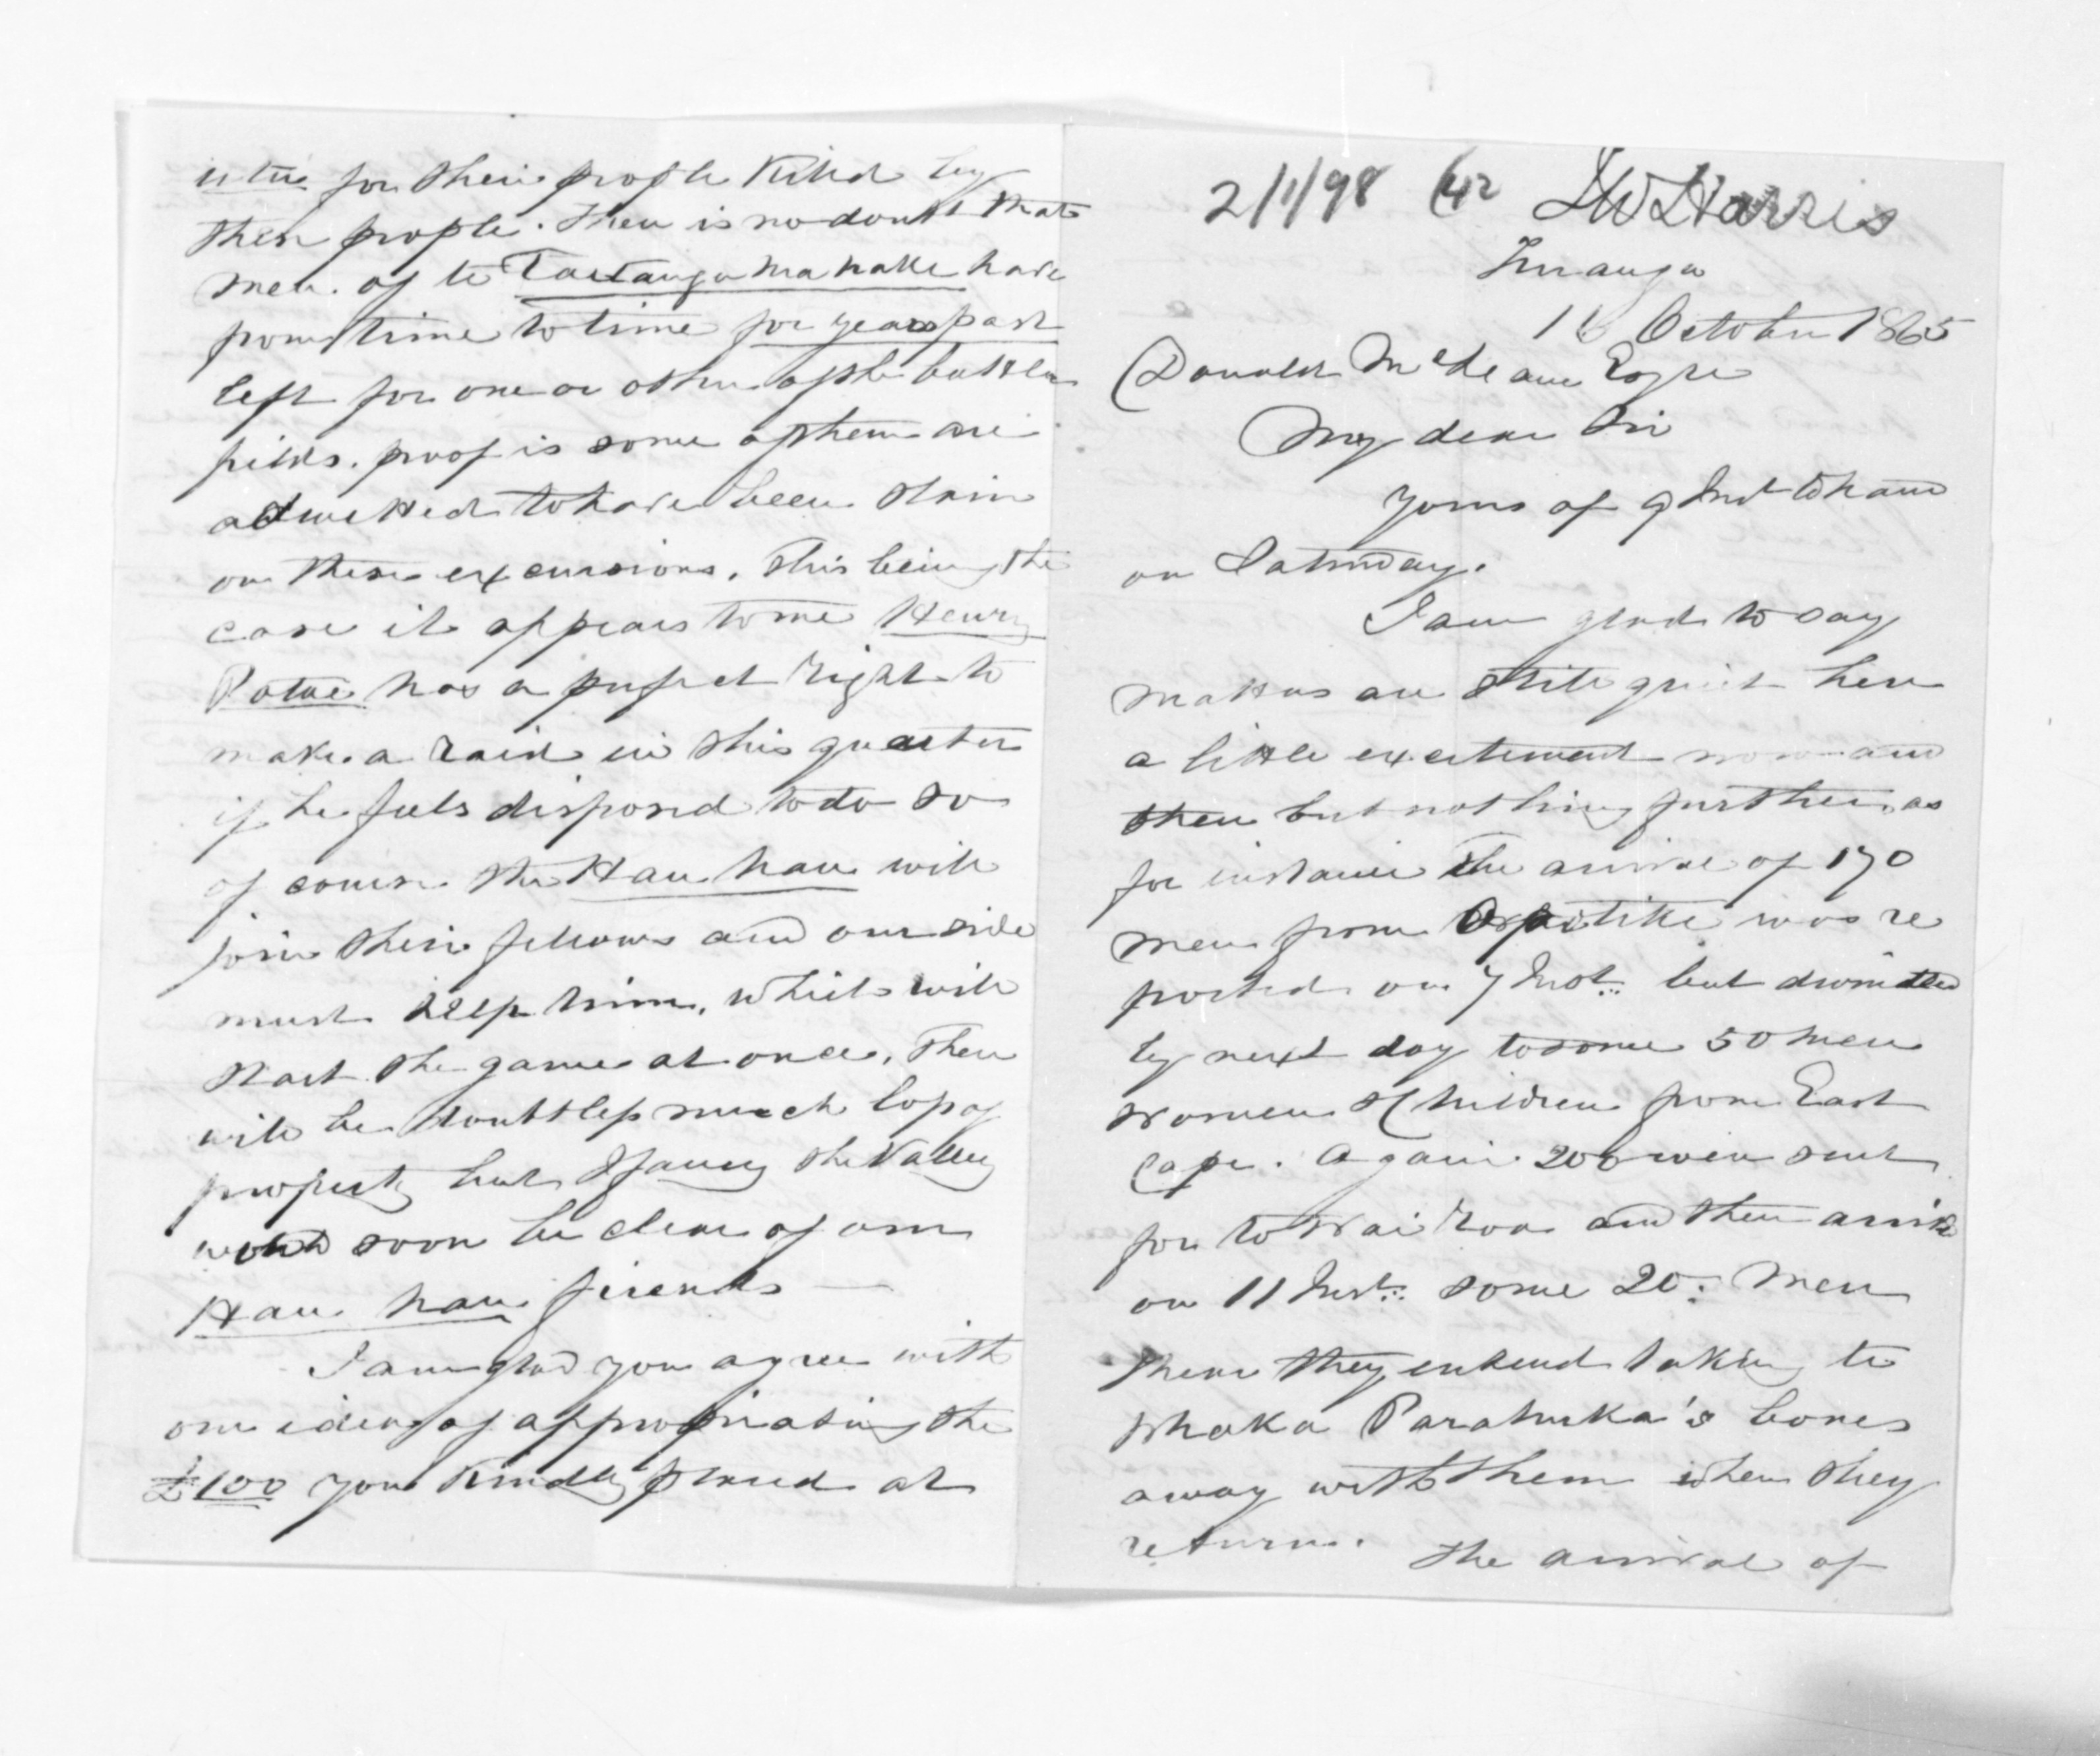 utu for their people killed by
these people. There is no doubt that
men of te Taitangamahake have
from time to time for years past
left for one or other of the battle
fields. proof is some of them are
admitted to have been slain
on these excursions. This being the
case it appears to me Henry
Potae has a perfect right to
make a raid in this quarter
if he feels disposed to do so
of course the Hau hau will
join their fellows and our side
must help him, which will
start the game at once, There
will be doubtless much loss of
property but I fancy the Valley
would soon be clear of our
Hau hau friends —
I am glad you agree with
our idea of appropriating the
£100 you kindly placed at
2/1/98 42 J W Harris
Turanga
16 October 1865
Donald McLean Esqre
My dear Sir
Yours of 9 Inst to hand
on Saturday.
I am glad to say
matters are still quiet here
a little excitement now and
then but nothing further, as
for instance The arrival of 170
men from Opotiki was re
ported on 7 Inst. but dwindled
by next day to some 50 men
women & children from East
Cape. Again 200 were sent
for to Wairoa and there arrive
on 11 Inst. some 20. Men
there they entend taking te
Whaka Parahuka's bones
away with them when they
return. The arrival of